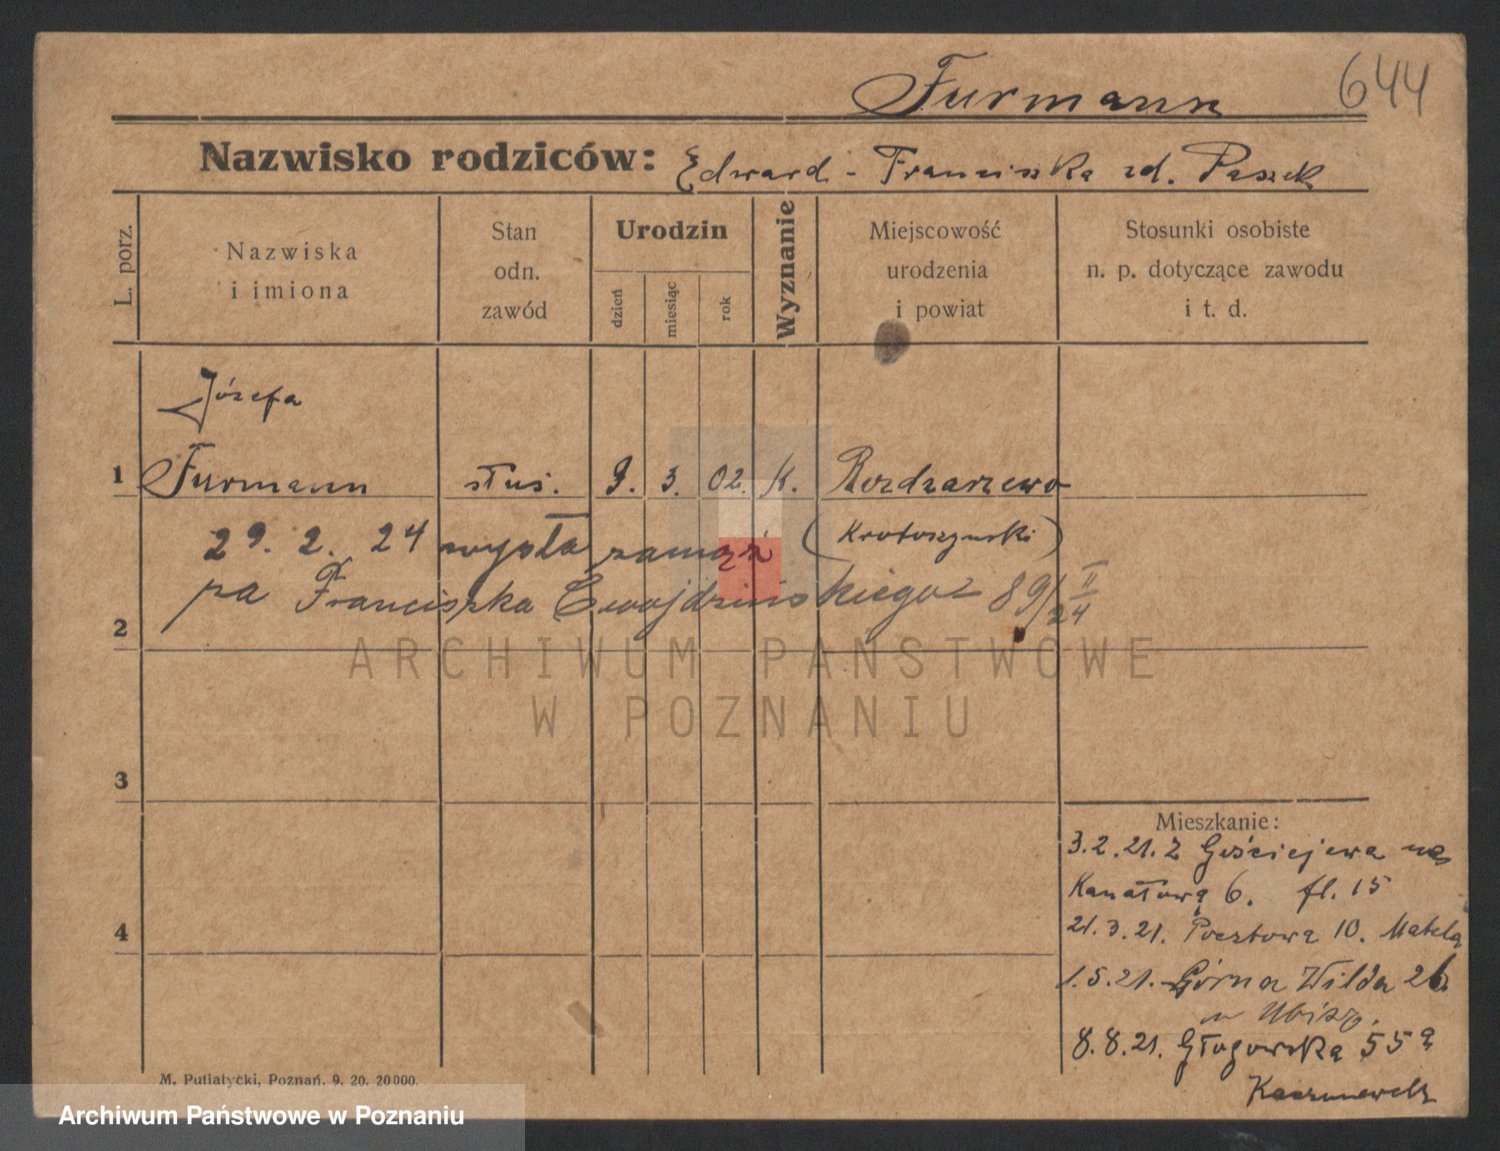 Furmann 644
Nazwisko rodziców: Edward - Franciszka zd. Paszek
L. porz.
Nazwiska
i imiona
Stan
odn.
zawód
Urodzin
dzień
miesiąc
rok
Wyznanie
Miejscowość
urodzenia
i powiat
Stosunki osobiste
n. p. dotyczące zawodu
i t. d.
Józefa
1 Furmann służ. 9. 3. 02. k. Rozdrażewo
29. 2. 24 wyszła zamąż (Krotoszyński)
za Franciszka Cwojdzińskiego 89/II 24
2
ARCHIWUM PAŃSTWOWE
W POZNANIU
3
Mieszkanie:
3.2.21. z Gościejewa na
Kanałową 6. fl. 15
4
21.3.21. Pocztowa 10. Matela
1.5.21. Górna Wilda 26
8.8.21. Głogowska 55a
M. Putiatycki, Poznań. 9. 20. 20000.
Archiwum Państwowe w Poznaniu